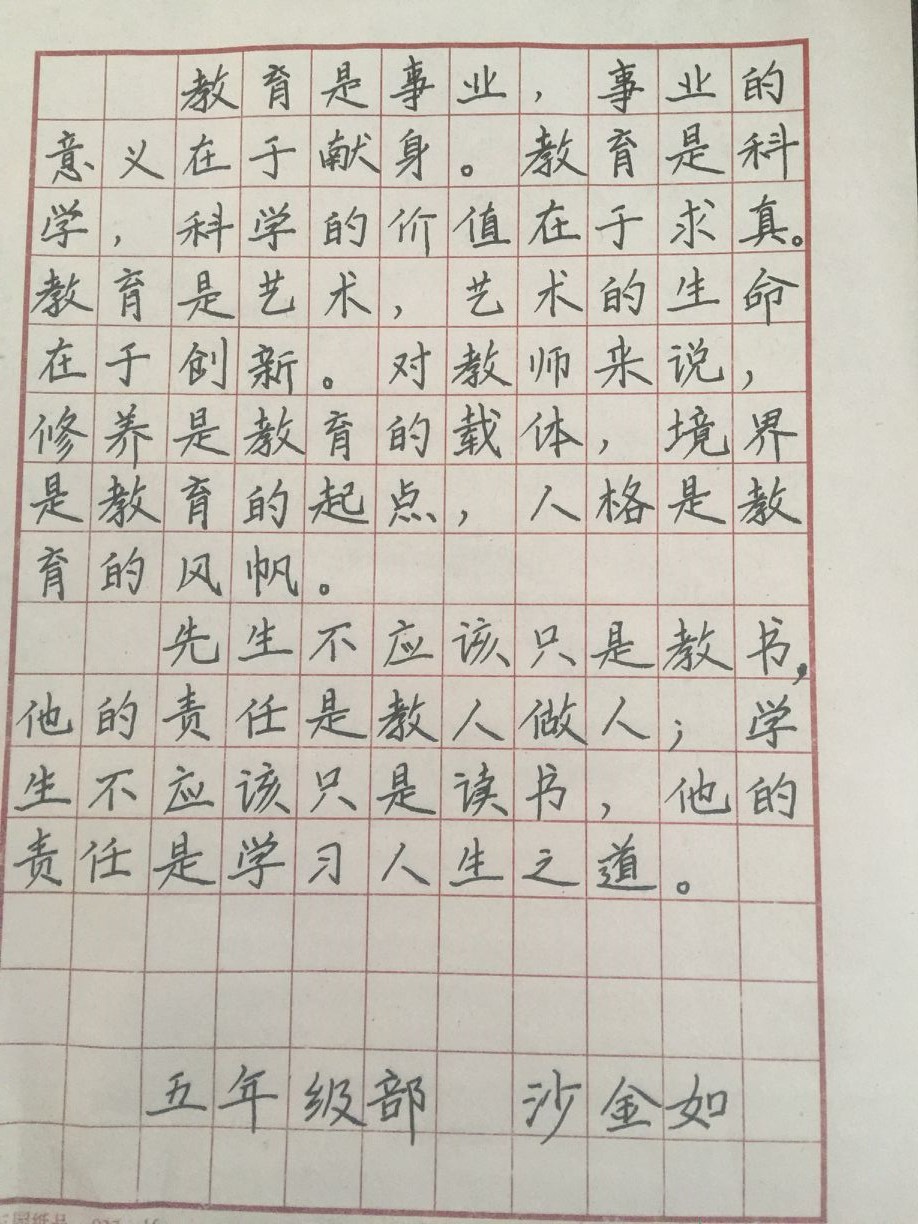 教育是事业，事业的
意义在于献身。教育是科
学，科学的价值在于求真。
教育是艺术，艺术的生命
在于创新。对教师来说，
修养是教育的载体，境界
是教育的起点，人格是教
育的风帆。
先生不应该只是教书，
他的责任是教人做人；学
生不应该只是读书，他的
责任是学习人生之道。
五年级部 沙金如